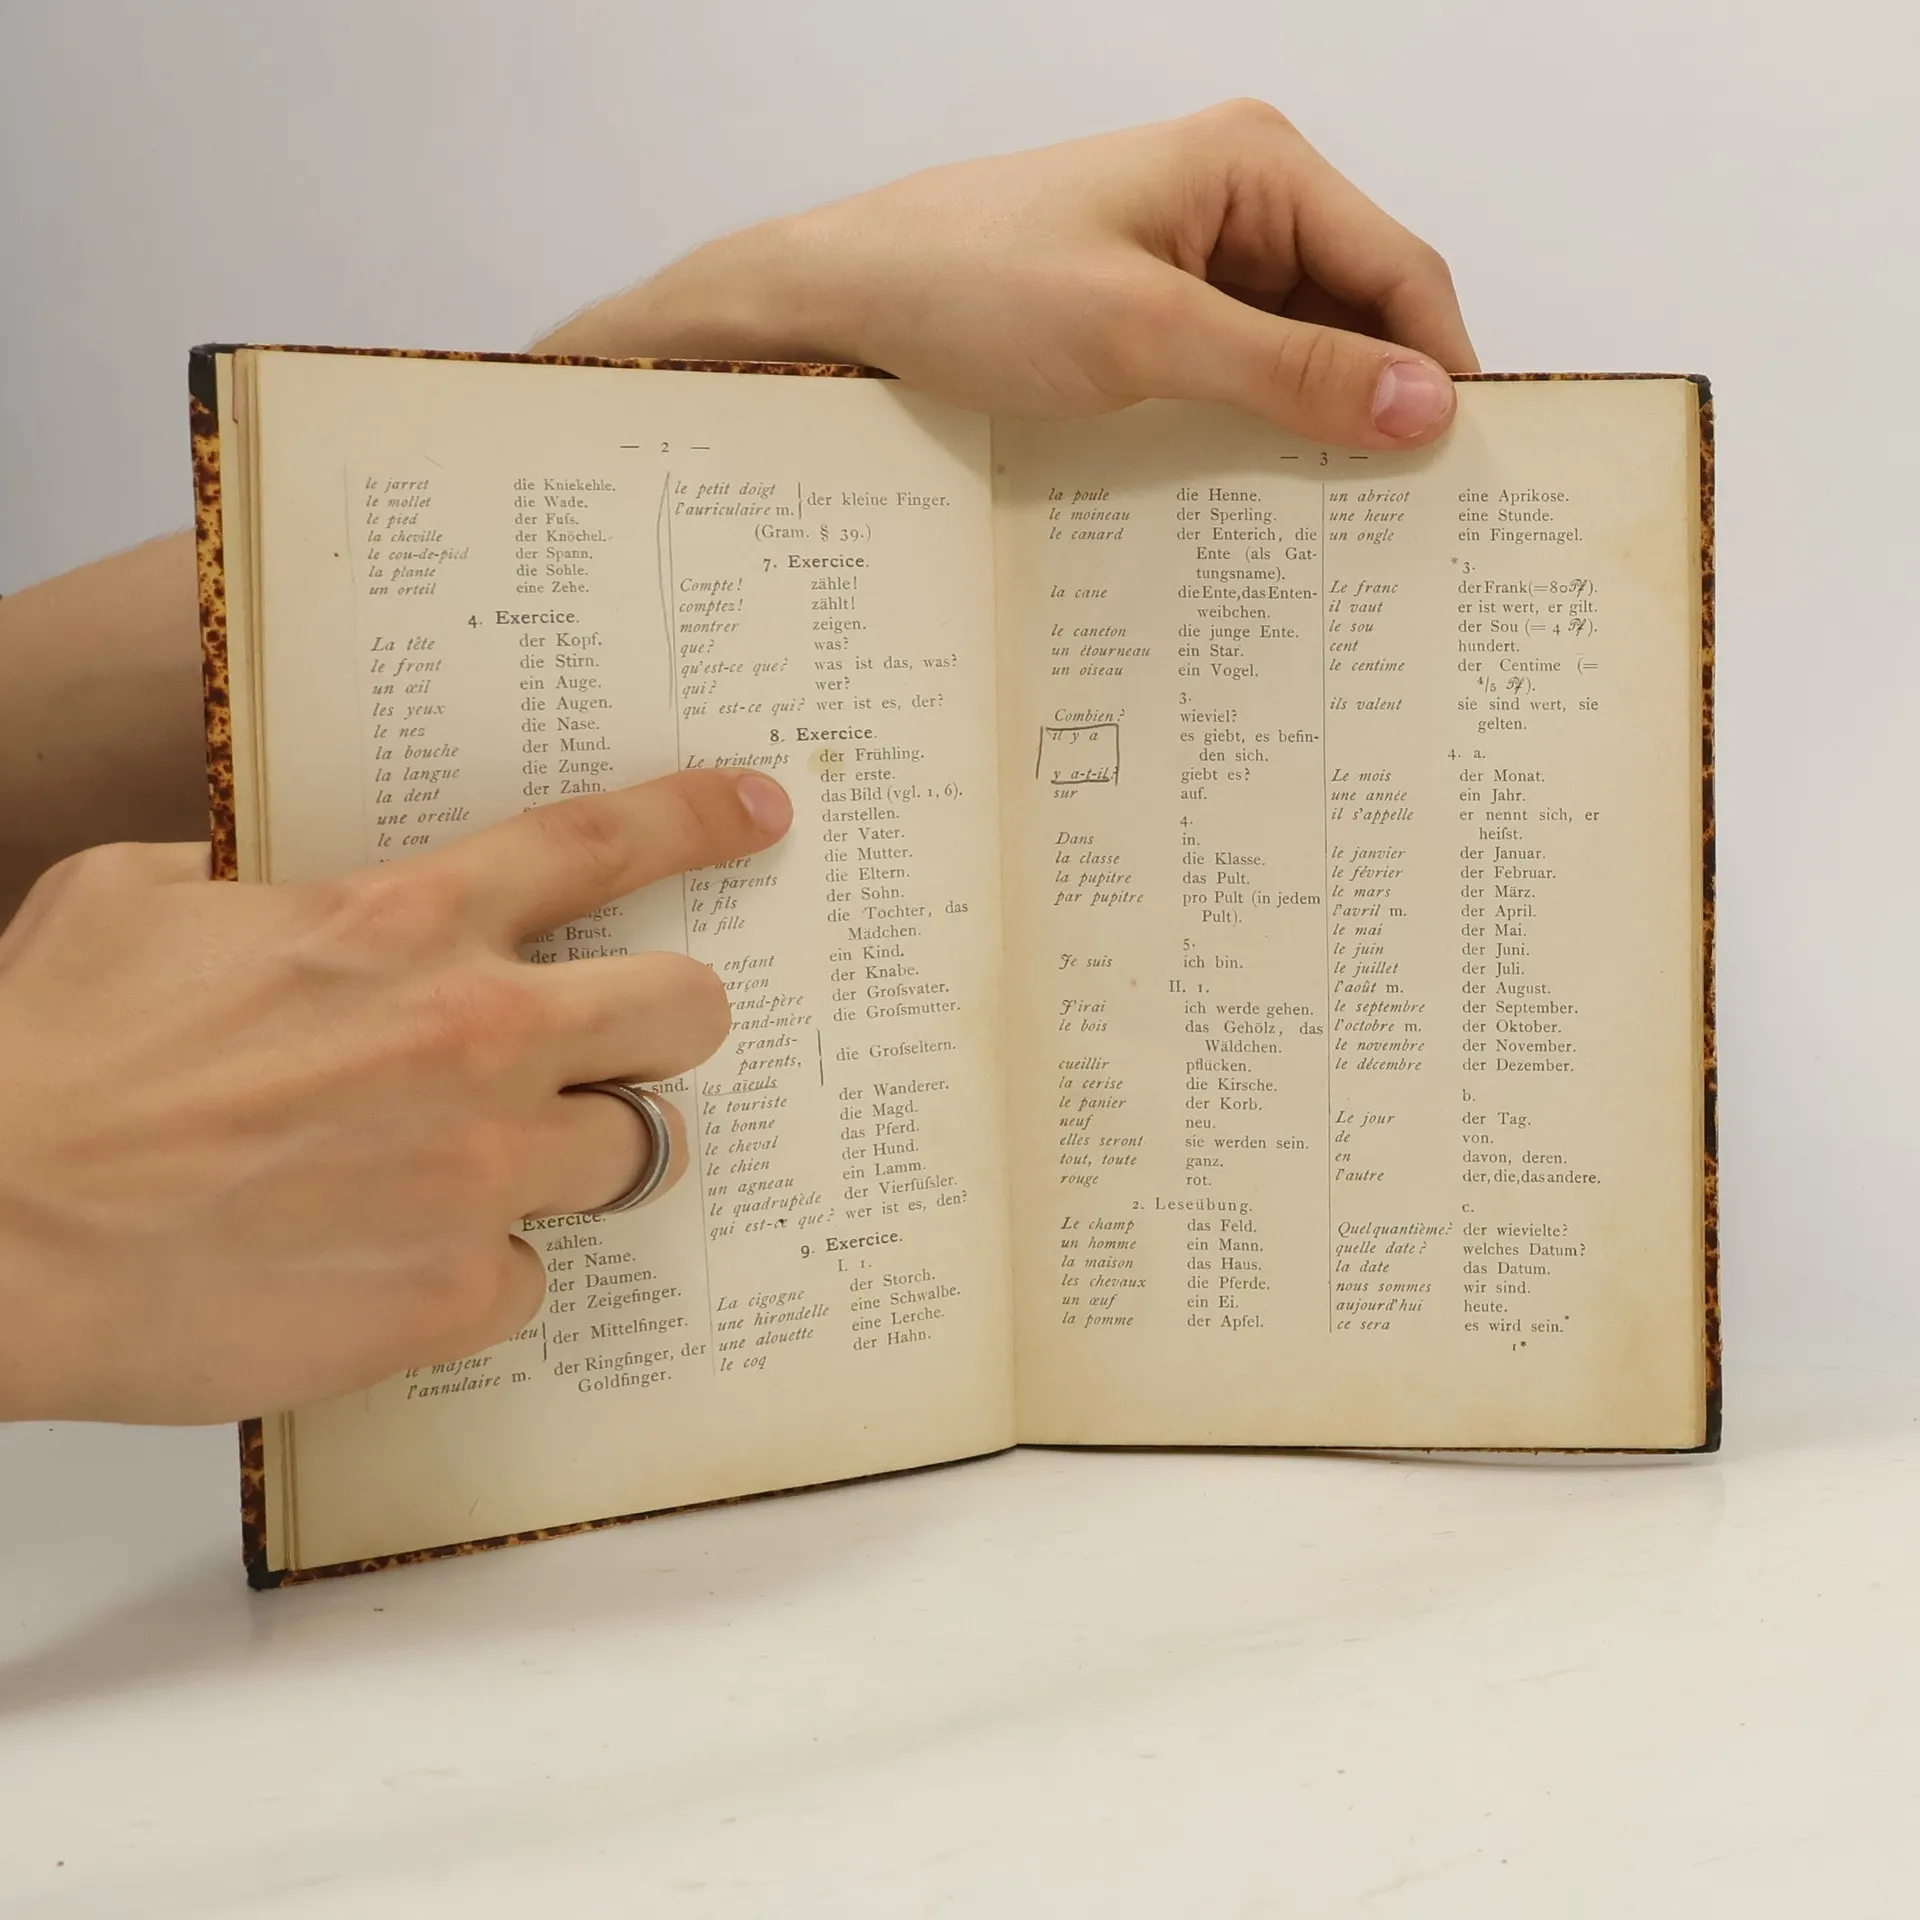 — 2 —
le jarret die Kniekehle.
le mollet die Wade.
le pied der Fuſs.
la cheville der Knöchel.
le cou-de-pied der Spann.
la plante die Sohle.
un orteil eine Zehe.
4. Exercice.
La tête der Kopf.
le front die Stirn.
un œil ein Auge.
les yeux die Augen.
le nez die Nase.
la bouche der Mund.
la langue die Zunge.
la dent der Zahn.
une oreille
le cou
Brust.
der Rücken
sind.
Exercice.
zählen.
der Name.
der Daumen.
der Zeigefinger.
der Mittelfinger.
le majeur
l'annulaire m. der Ringfinger, der
Goldfinger.
le petit doigt
l'auriculaire m. der kleine Finger.
(Gram. § 39.)
7. Exercice.
Compte! zähle!
comptez! zählt!
montrer zeigen.
que? was?
qu'est-ce que? was ist das, was?
qui? wer?
qui est-ce qui? wer ist es, der?
8. Exercice.
Le printemps der Frühling.
der erste.
das Bild (vgl. 1, 6).
darstellen.
der Vater.
la mère die Mutter.
les parents die Eltern.
le fils der Sohn.
la fille die Tochter, das
Mädchen.
enfant ein Kind.
der Knabe.
der Groſsvater.
die Groſsmutter.
grands-
parents, die Groſseltern.
les aïeuls
le touriste der Wanderer.
la bonne die Magd.
le cheval das Pferd.
le chien der Hund.
un agneau ein Lamm.
le quadrupède der Vierfüſsler.
qui est-ce que? wer ist es, den?
9. Exercice.
I. 1.
La cigogne der Storch.
une hirondelle eine Schwalbe.
une alouette eine Lerche.
le coq der Hahn.
— 3 —
la poule die Henne.
le moineau der Sperling.
le canard der Enterich, die
Ente (als Gat-
tungsname).
la cane die Ente, das Enten-
weibchen.
le caneton die junge Ente.
un étourneau ein Star.
un oiseau ein Vogel.
3.
Combien? wieviel?
il y a es giebt, es befin-
den sich.
y a-t-il? giebt es?
sur auf.
4.
Dans in.
la classe die Klasse.
la pupitre das Pult.
par pupitre pro Pult (in jedem
Pult).
5.
Je suis ich bin.
II. 1.
J'irai ich werde gehen.
le bois das Gehölz, das
Wäldchen.
cueillir pflücken.
la cerise die Kirsche.
le panier der Korb.
neuf neu.
elles seront sie werden sein.
tout, toute ganz.
rouge rot.
2. Leseübung.
Le champ das Feld.
un homme ein Mann.
la maison das Haus.
les chevaux die Pferde.
un œuf ein Ei.
la pomme der Apfel.
un abricot eine Aprikose.
une heure eine Stunde.
un ongle ein Fingernagel.
*3.
Le franc der Frank (=80 Pf).
il vaut er ist wert, er gilt.
le sou der Sou (= 4 Pf).
cent hundert.
le centime der Centime (=
4/5 Pf).
ils valent sie sind wert, sie
gelten.
4. a.
Le mois der Monat.
une année ein Jahr.
il s'appelle er nennt sich, er
heiſst.
le janvier der Januar.
le février der Februar.
le mars der März.
l'avril m. der April.
le mai der Mai.
le juin der Juni.
le juillet der Juli.
l'août m. der August.
le septembre der September.
l'octobre m. der Oktober.
le novembre der November.
le décembre der Dezember.
b.
Le jour der Tag.
de von.
en davon, deren.
l'autre der, die, das andere.
c.
Quel quantième? der wievielte?
quelle date? welches Datum?
la date das Datum.
nous sommes wir sind.
aujourd'hui heute.
ce sera es wird sein.
1*